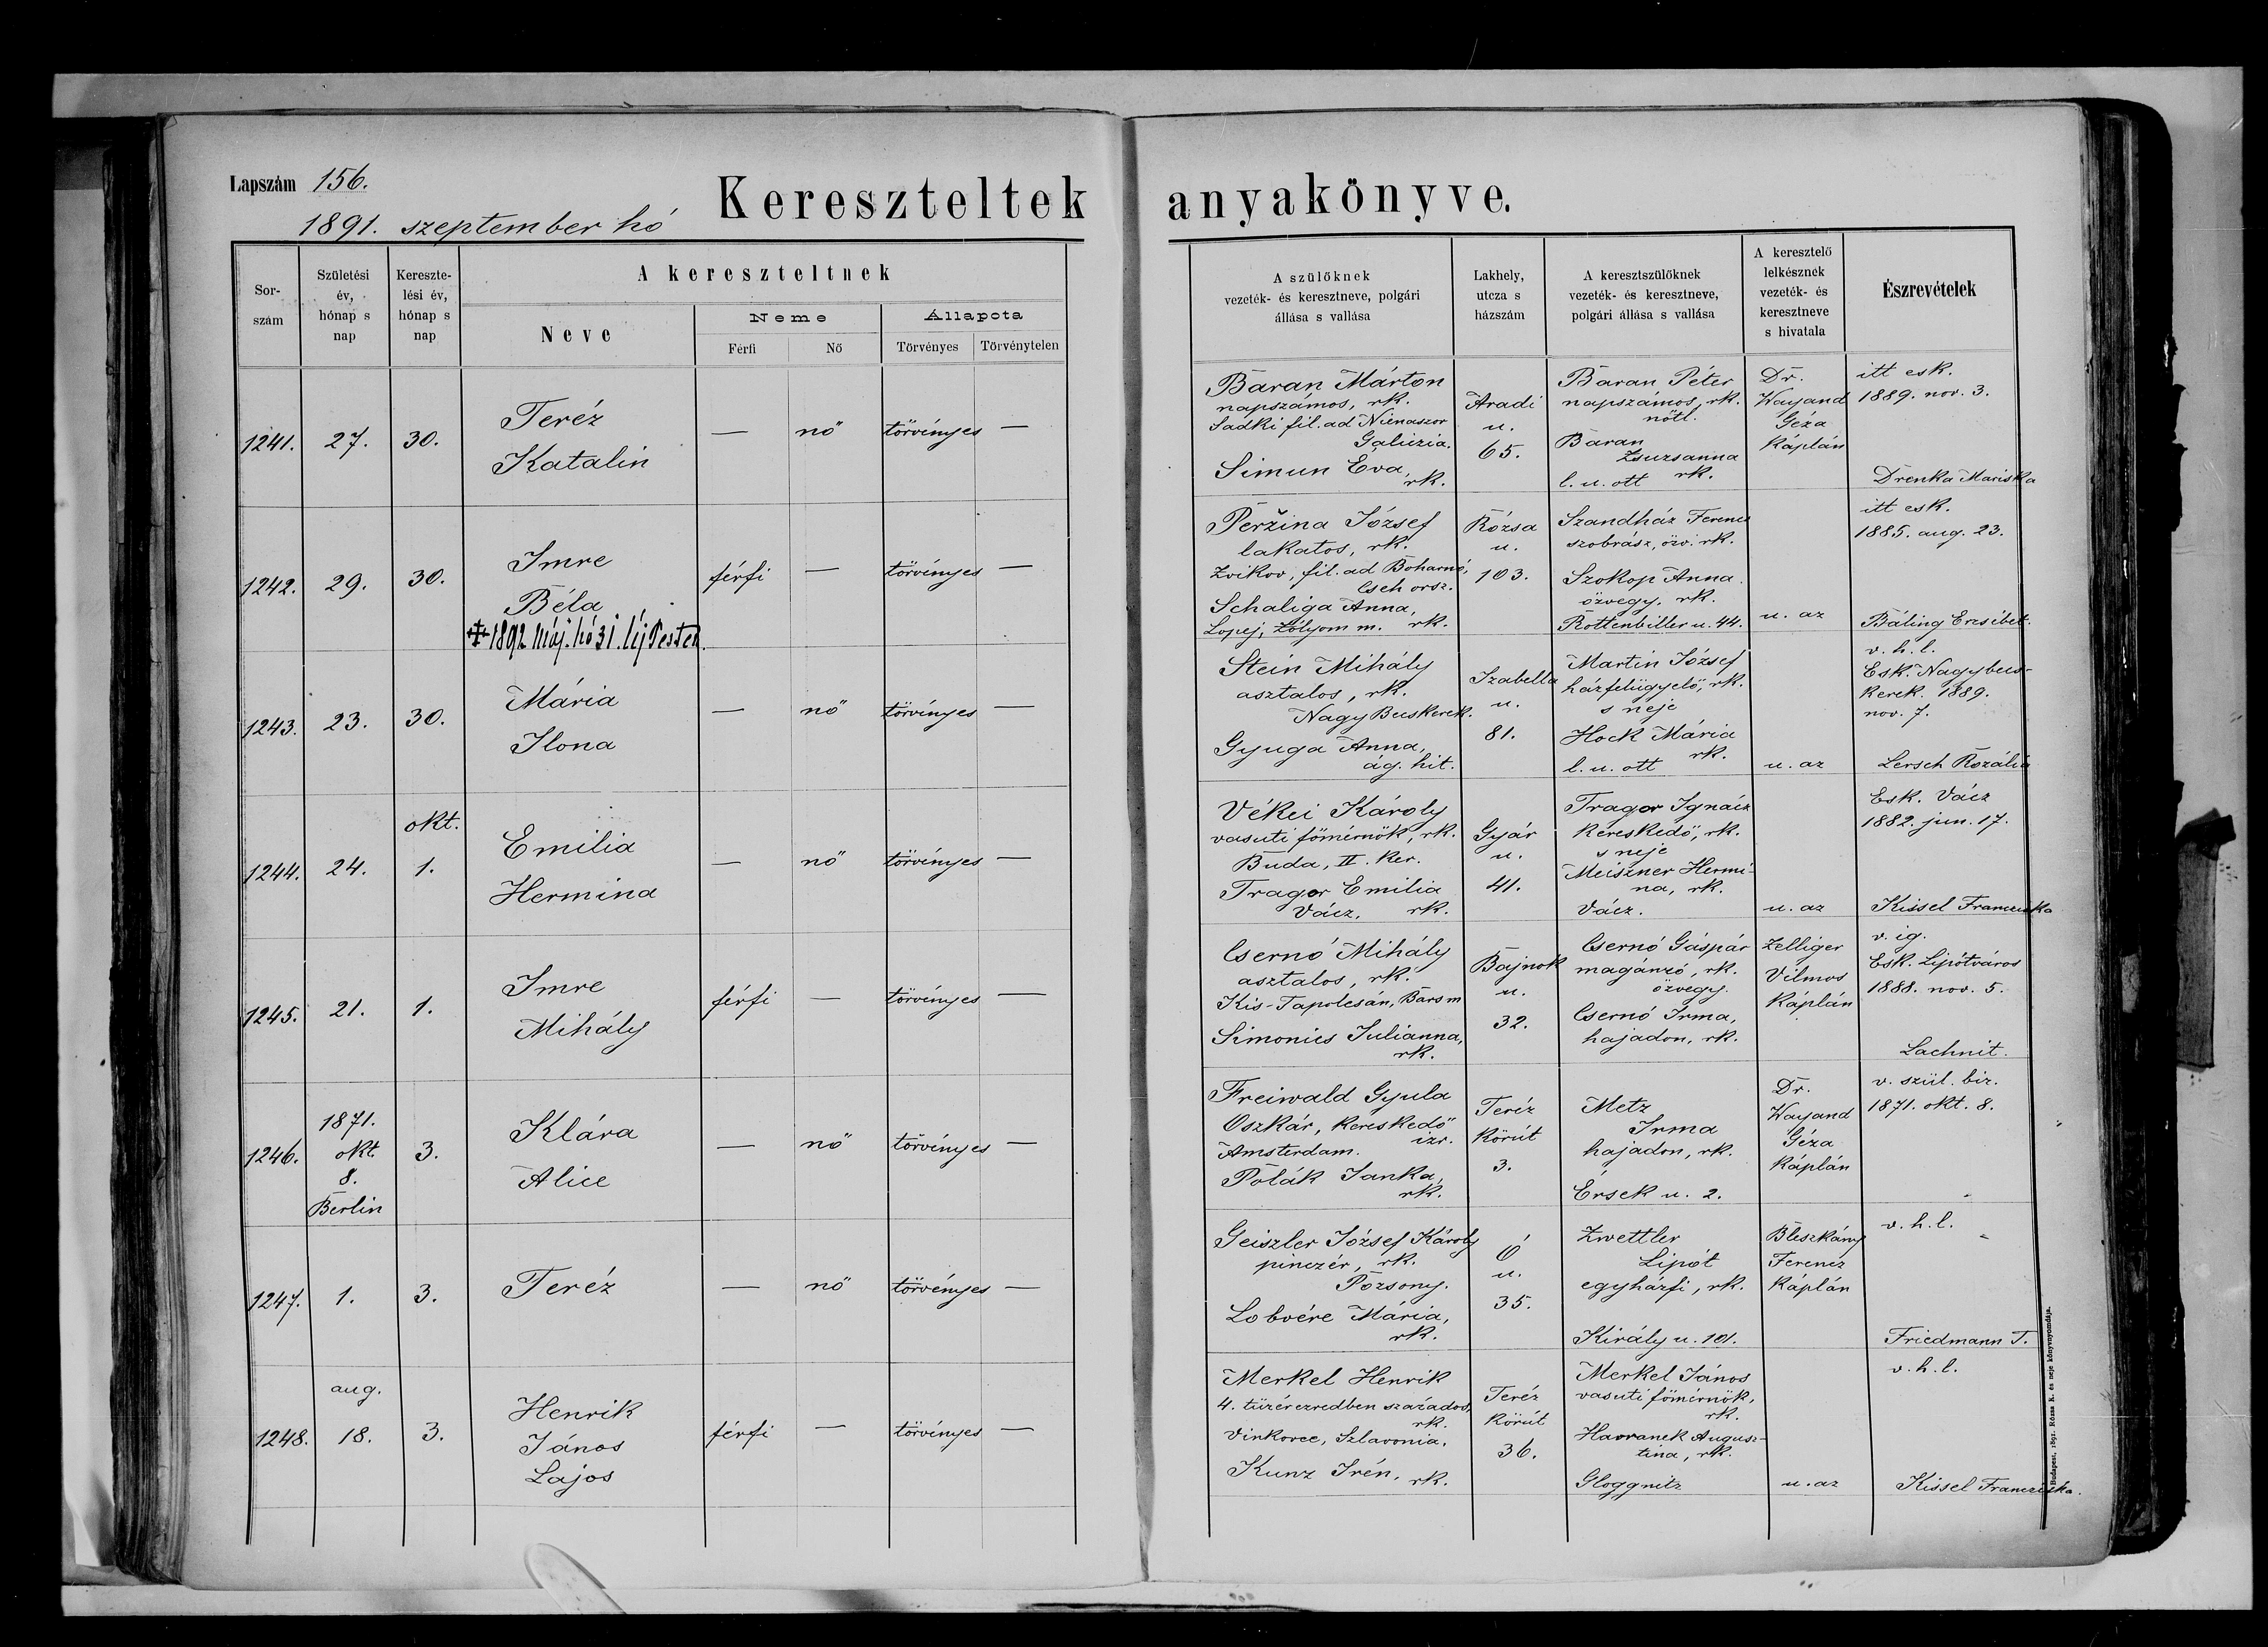 Lapszám 156.
Kereszteltek anyakönyve.
1891. szeptember hó
Sor-
szám
Születési
év,
hónap s
nap
Kereszte-
lési év,
hónap s
nap
A kereszteltnek
Neve
Neme
Férfi
Nő
Állapota
Törvényes
Törvénytelen
A szülőknek
vezeték- és keresztneve, polgári
állása s vallása
Lakhely,
utcza s
házszám
A keresztszülőknek
vezeték- és keresztneve,
polgári állása s vallása
A keresztelő
lelkésznek
vezeték- és
keresztneve
s hivatala
Észrevételek
1241.
27.
30.
Teréz
Katalin
—
nő
törvényes
—
Baran Márton
napszámos, rk.
Sadki fil. ad Nienaszov
Galiczia.
Simun Éva,
rk.
Aradi
u.
65.
Baran Péter
napszámos, rk.
nőtl.
Baran
Zsuzsanna
l. u. ott rk.
Dr.
Wayand
Géza
káplán
itt esk.
1889. nov. 3.
Drenka Mariska
1242.
29.
30.
Imre
Béla
1892 Máj. hó 31. Új Pesten.
férfi
—
törvényes
—
Peržina József
lakatos, rk.
Zvikov, fil. ad Boharnó,
Cseh orsz.
Schaliga Anna,
Lopej, Zólyom m. rk.
Rózsa
u.
103.
Szandház Ferencz
szobrász, özv. rk.
Szokop Anna
özvegy, rk.
Rottenbiller u. 44.
u. az
itt esk.
1885. aug. 23.
Báling Erzsébet.
1243.
23.
30.
Mária
Ilona
—
nő
törvényes
—
Stein Mihály
asztalos, rk.
Nagy Becskerek.
Gyuga Anna,
ág. hit.
Izabella
u.
81.
Martin József
házfelügyelő, rk.
s neje
Hock Mária
rk.
l. u. ott
u. az
v. h. l.
Esk. Nagybecs-
kerek. 1889.
nov. 7.
Lersch Rozália
1244.
24.
okt.
1.
Emilia
Hermina
—
nő
törvényes
—
Vékei Károly
vasuti főmérnök, rk.
Buda, II. ker.
Tragor Emilia
Vácz. rk.
Gyár
u.
41.
Tragor Ignácz
kereskedő, rk.
s neje
Meiszner Hermi-
na, rk.
Vácz.
u. az
Esk. Vácz
1882. jun. 17.
Kissel Francziska
1245.
21.
1.
Imre
Mihály
férfi
—
törvényes
—
Csernó Mihály
asztalos, rk.
Kis-Tapolcsán, Bars m
Simonics Julianna,
rk.
Bajnok
u.
32.
Csernó Gáspár
magánzó, rk.
özvegy.
Csernó Irma,
hajadon, rk.
Zelliger
Vilmos
káplán
v. ig.
Esk. Lipótváros
1888. nov. 5.
Lachnit.
1246.
1871.
okt.
8.
Berlin
3.
Klára
Alice
—
nő
törvényes
—
Freiwald Gyula
Oszkár, kereskedő
izr.
Amsterdam.
Polák Janka,
rk.
Teréz
körút
3.
Metz
Irma
hajadon, rk.
Érsek u. 2.
Dr.
Wayand
Géza
káplán
v. szül. biz.
1871. okt. 8.
1247.
1.
3.
Teréz
—
nő
törvényes
—
Geiszler József Károly
pinczér, rk.
Pozsony.
Lobvére Mária,
rk.
Ó
u.
35.
Zwettler
Lipót
egyházfi, rk.
Király u. 101.
Bleszkány
Ferencz
káplán
v. h. l.
Friedmann T.
1248.
aug.
18.
3.
Henrik
János
Lajos
férfi
—
törvényes
—
Merkel Henrik
4. tüzérezredben százados,
rk.
Vinkovce, Szlavonia.
Kunz Irén, rk.
Teréz
körút
36.
Merkel János
vasuti főmérnök,
rk.
Havranek Augusz-
tina, rk.
Gloggnitz
u. az
v. h. l.
Kissel Francziska.
Budapest, 1891. Rózsa K. és neje könyvnyomdája.